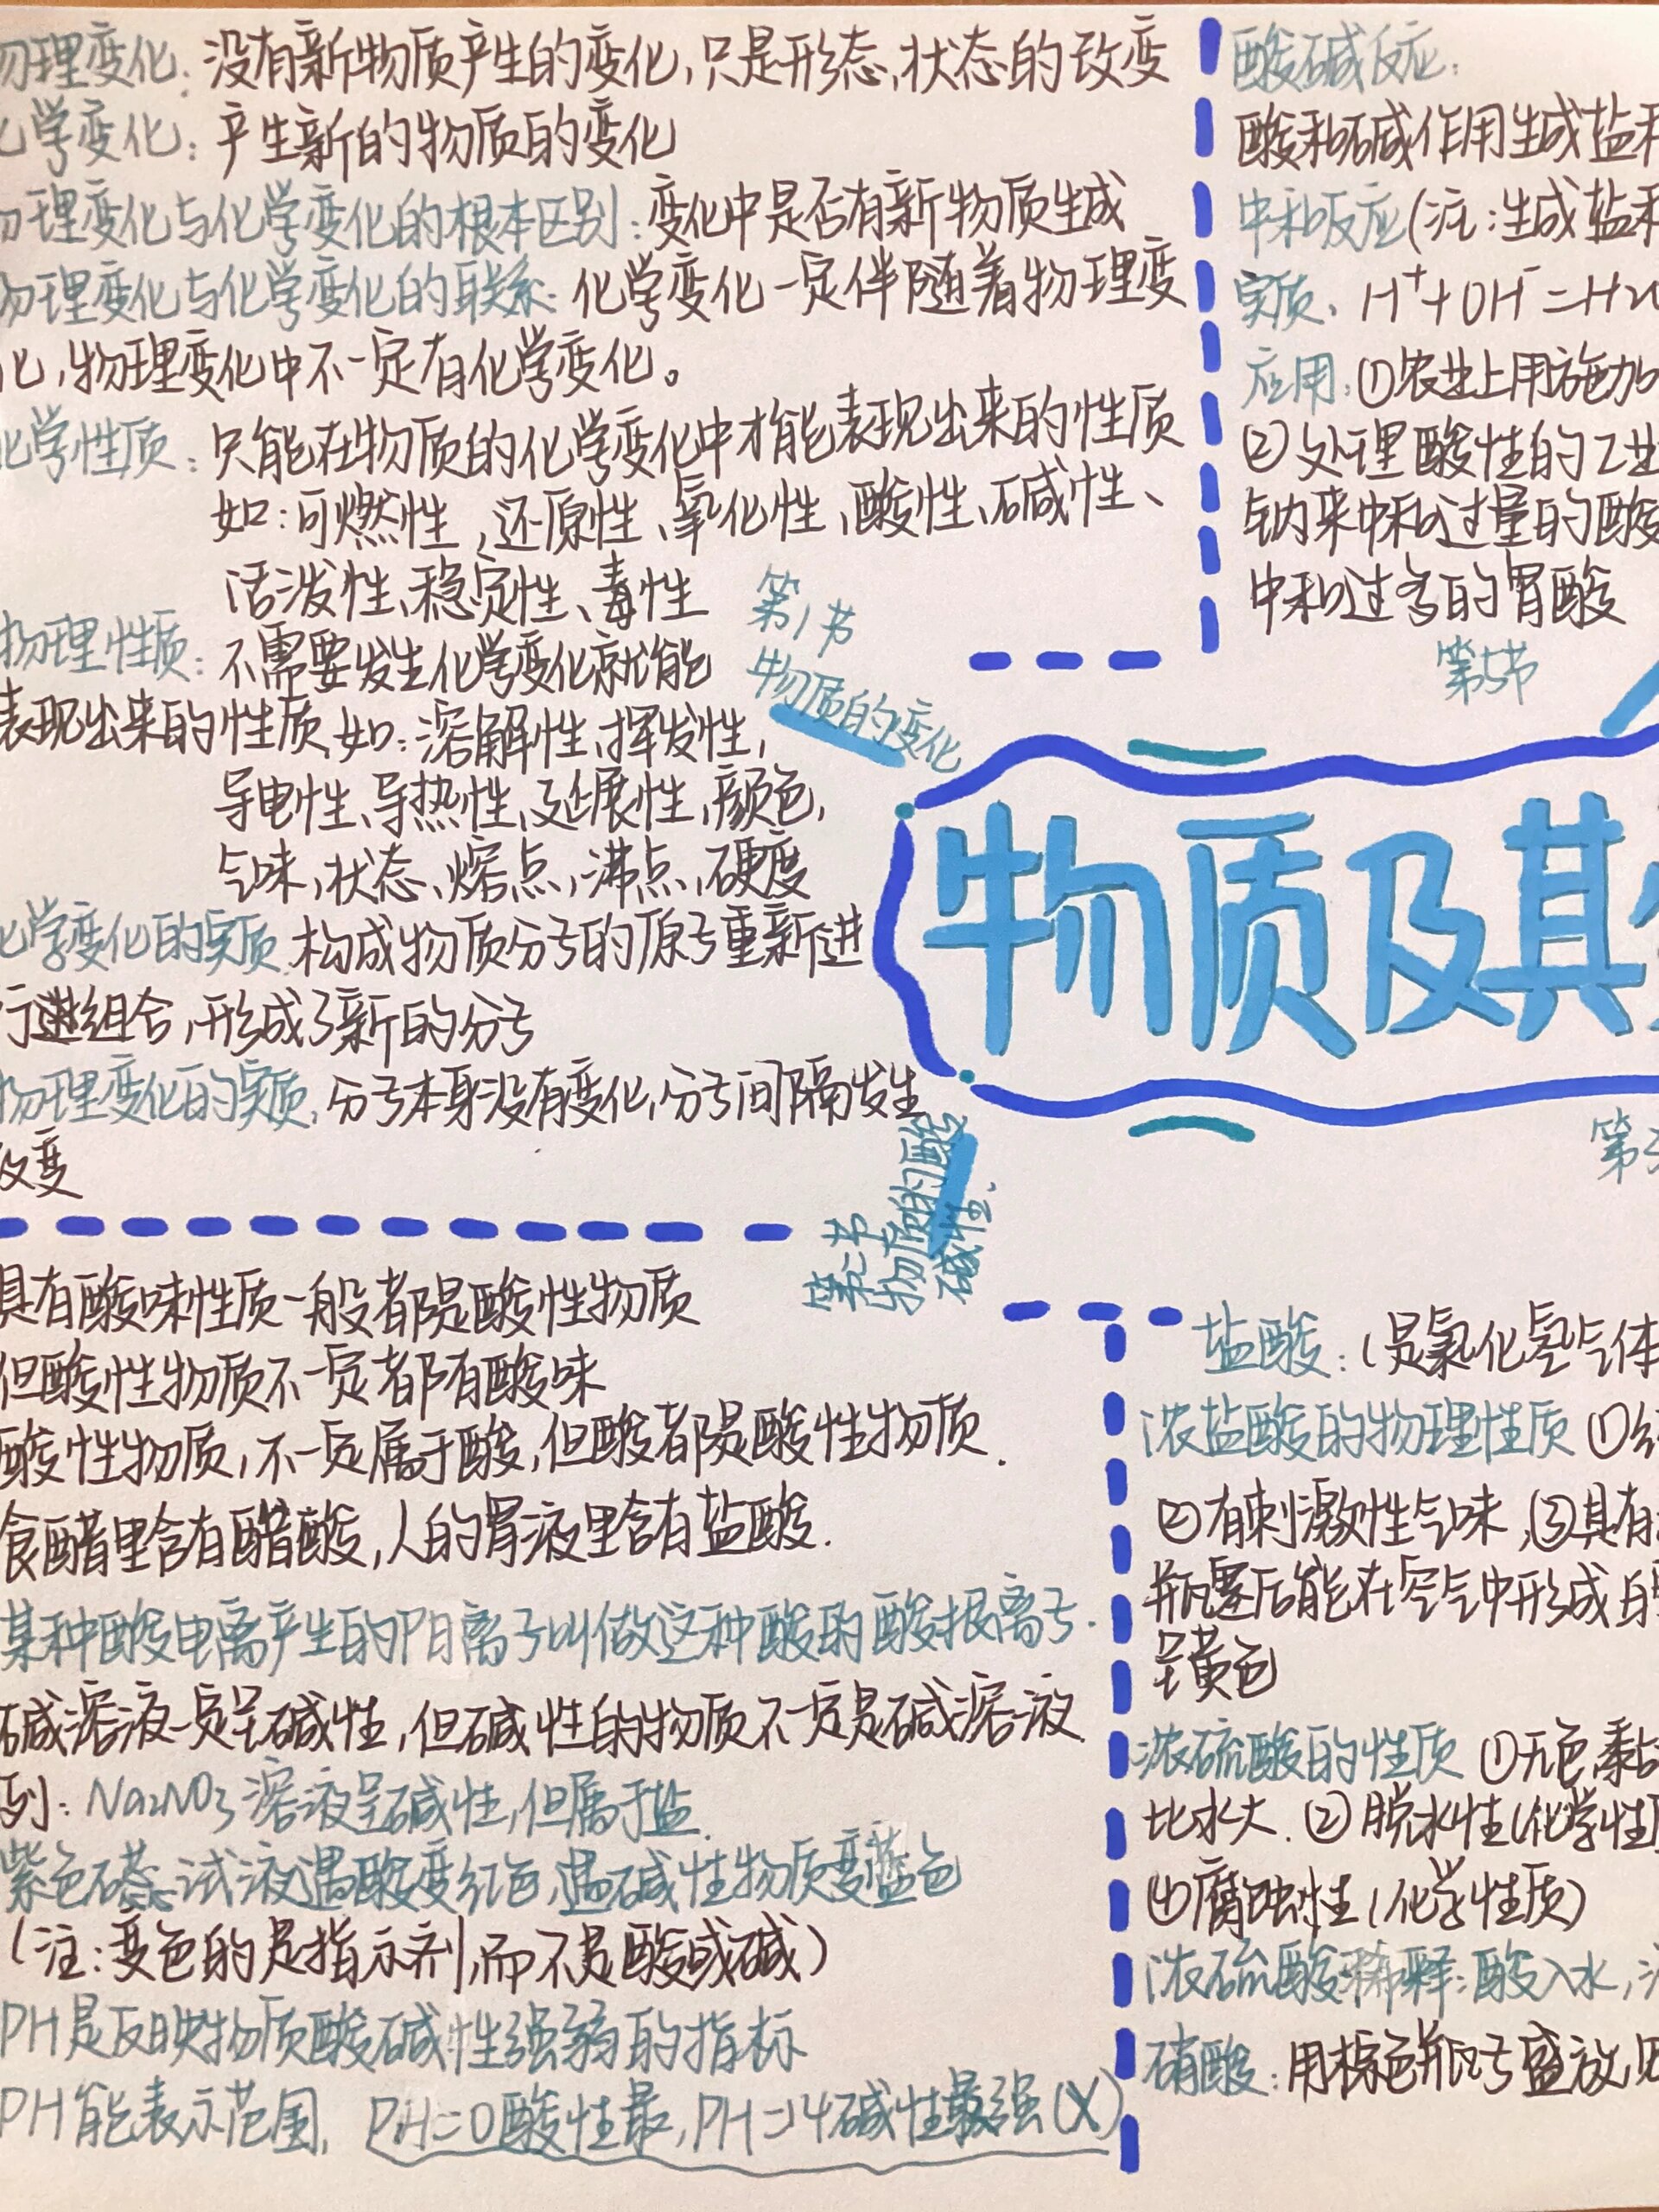 物理变化：没有新物质产生的变化，只是形态、状态的改变
化学变化：产生新的物质的变化
物理变化与化学变化的根本区别：变化中是否有新物质生成
物理变化与化学变化的联系：化学变化一定伴随着物理变
化，物理变化中不一定有化学变化。
化学性质：只能在物质的化学变化中才能表现出来的性质
如：可燃性、还原性、氧化性、酸性、碱性、
活泼性、稳定性、毒性
物理性质：不需要发生化学变化就能
表现出来的性质，如：溶解性、挥发性，
导电性、导热性、延展性、颜色，
气味、状态、熔点、沸点、硬度
化学变化的实质：构成物质分子的原子重新进
行组合，形成了新的分子
物理变化的实质：分子本身没有变化，分子间隔发生
改变
第1节
物质的变化
酸碱反应：
酸和碱作用生成盐和
中和反应(注：生成盐和
实质：H⁺+OH⁻=H2O
应用：①农业上用施加
②处理酸性的工业
钠来中和过量的酸
中和过多的胃酸
第5节
物质及其
第二节
物质的酸
碱性、
第3
具有酸味性质一般都是酸性物质
但酸性物质不一定都有酸味
酸性物质，不一定属于酸，但酸都是酸性物质.
食醋里含有醋酸，人的胃液里含有盐酸.
某种酸电离产生的阴离子叫做这种酸的酸根离子.
碱溶液一定呈碱性，但碱性的物质不一定是碱溶液
列：Na2NO3溶液呈碱性，但属于盐.
紫色石蕊试液遇酸变红色，遇碱性物质变蓝色
(注：变色的是指示剂，而不是酸或碱)
PH是反映物质酸碱性强弱的指标
PH能表示范围，PH=0酸性最，PH=14碱性最强(X)
盐酸：(是氯化氢气体
浓盐酸的物理性质①
②有刺激性气味，③具有
瓶盖后能在空气中形成白
呈黄色
浓硫酸的性质①无色黏
比水大.②脱水性(化学性
④腐蚀性(化学性质)
浓硫酸稀释：酸入水，
硝酸：用棕色瓶子盛放，